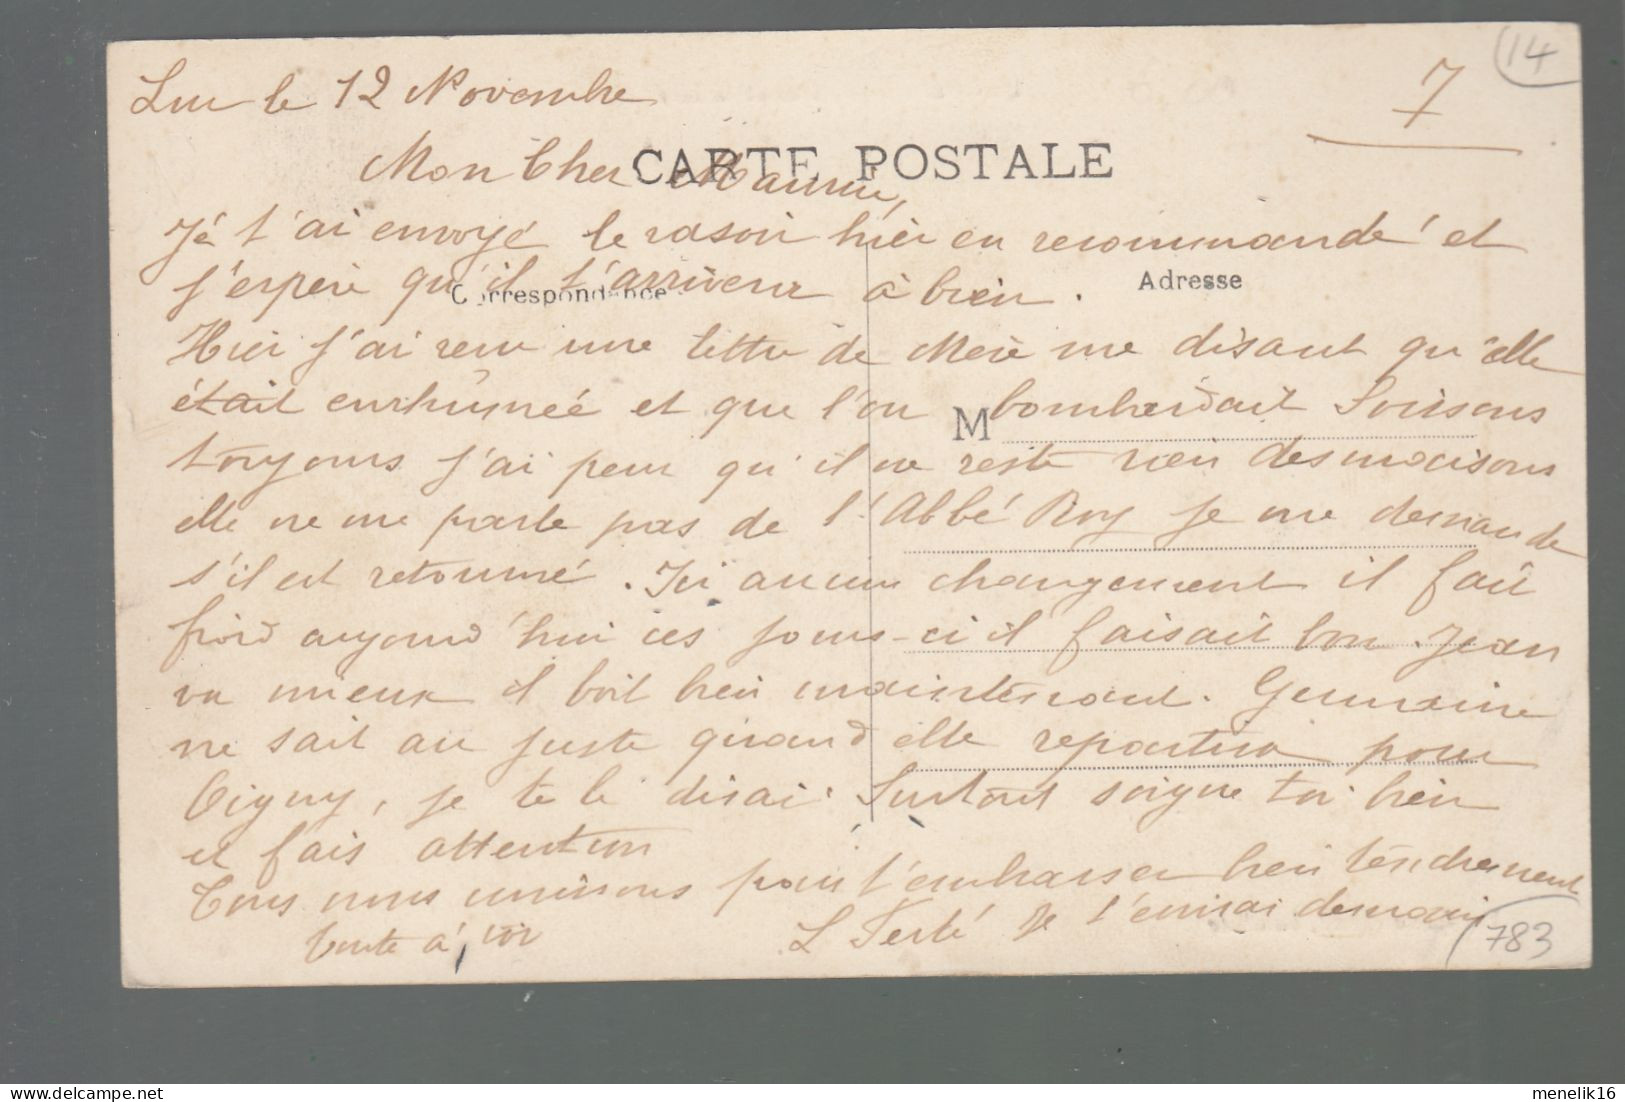 14
7
Luc le 12 Novembre
CARTE POSTALE
Mon Cher Maurice,
Je t'ai envoyé le rasoir hier en recommandé et
j'espère qu'il t'arrivera à bien.
Correspondance
Adresse
Hier j'ai recu une lettre de Mère me disant qu'elle
était enrhumée et que l'on bombardait Soissons
M
toujours j'ai peur qu'il ne reste rien des maisons
elle ne me parle pas de l'Abbé Roy je me demande
s'il est retourné. Ici aucun changement il fait
froid aujourd'hui ces jours-ci il faisait bon. Jean
va mieux il boit bien maintenant. Germaine
ne sait au juste quand elle repartira pour
Vigny, je te le dirai. Surtout soigne toi bien
et fais attention
Tous nous unissons pour t'embrasser bien tendrement
toute à toi
L Ferté Je t'écrirai demain
783
delcampe.net
menelik16